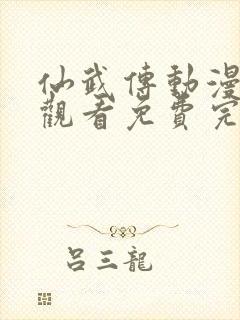 仙武傳動漫
觀看免費完
呂三龍